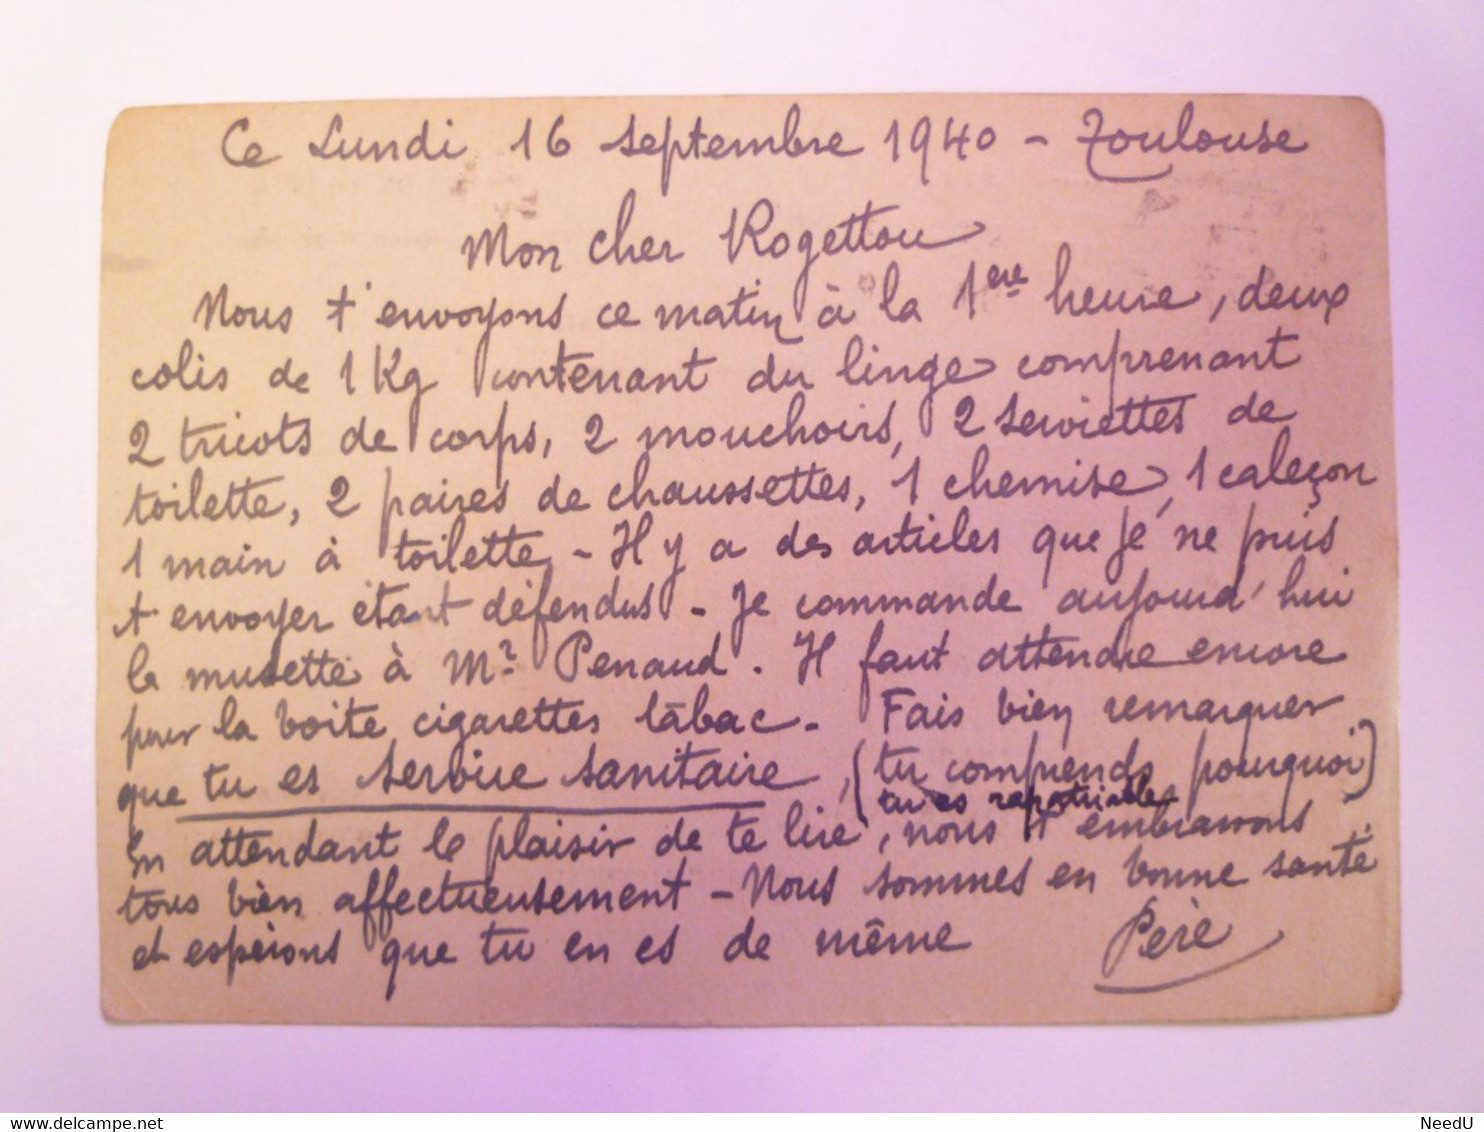 Ce Lundi 16 septembre 1940 - Toulouse
Mon cher Rogettou
Nous t'envoyons ce matin à la 1ère heure, deux
colis de 1 Kg contenant du linge comprenant
2 tricots de corps, 2 mouchoirs, 2 serviettes de
toilette, 2 paires de chaussettes, 1 chemise, 1 caleçon
1 main à toilette - Il y a des articles que je ne puis
t envoyer étant défendus - Je commande aujourd'hui
la musette à Mr Penaud. Il faut attendre encore
pour la boite cigarettes tabac - Fais bien remarquer
que tu es service sanitaire, (tu comprends pourquoi)
tu es rapatriable
En attendant le plaisir de te lire, nous t'embrassons
tous bien affectueusement - Nous sommes en bonne santé
et espérons que tu en es de même Père
NeedU